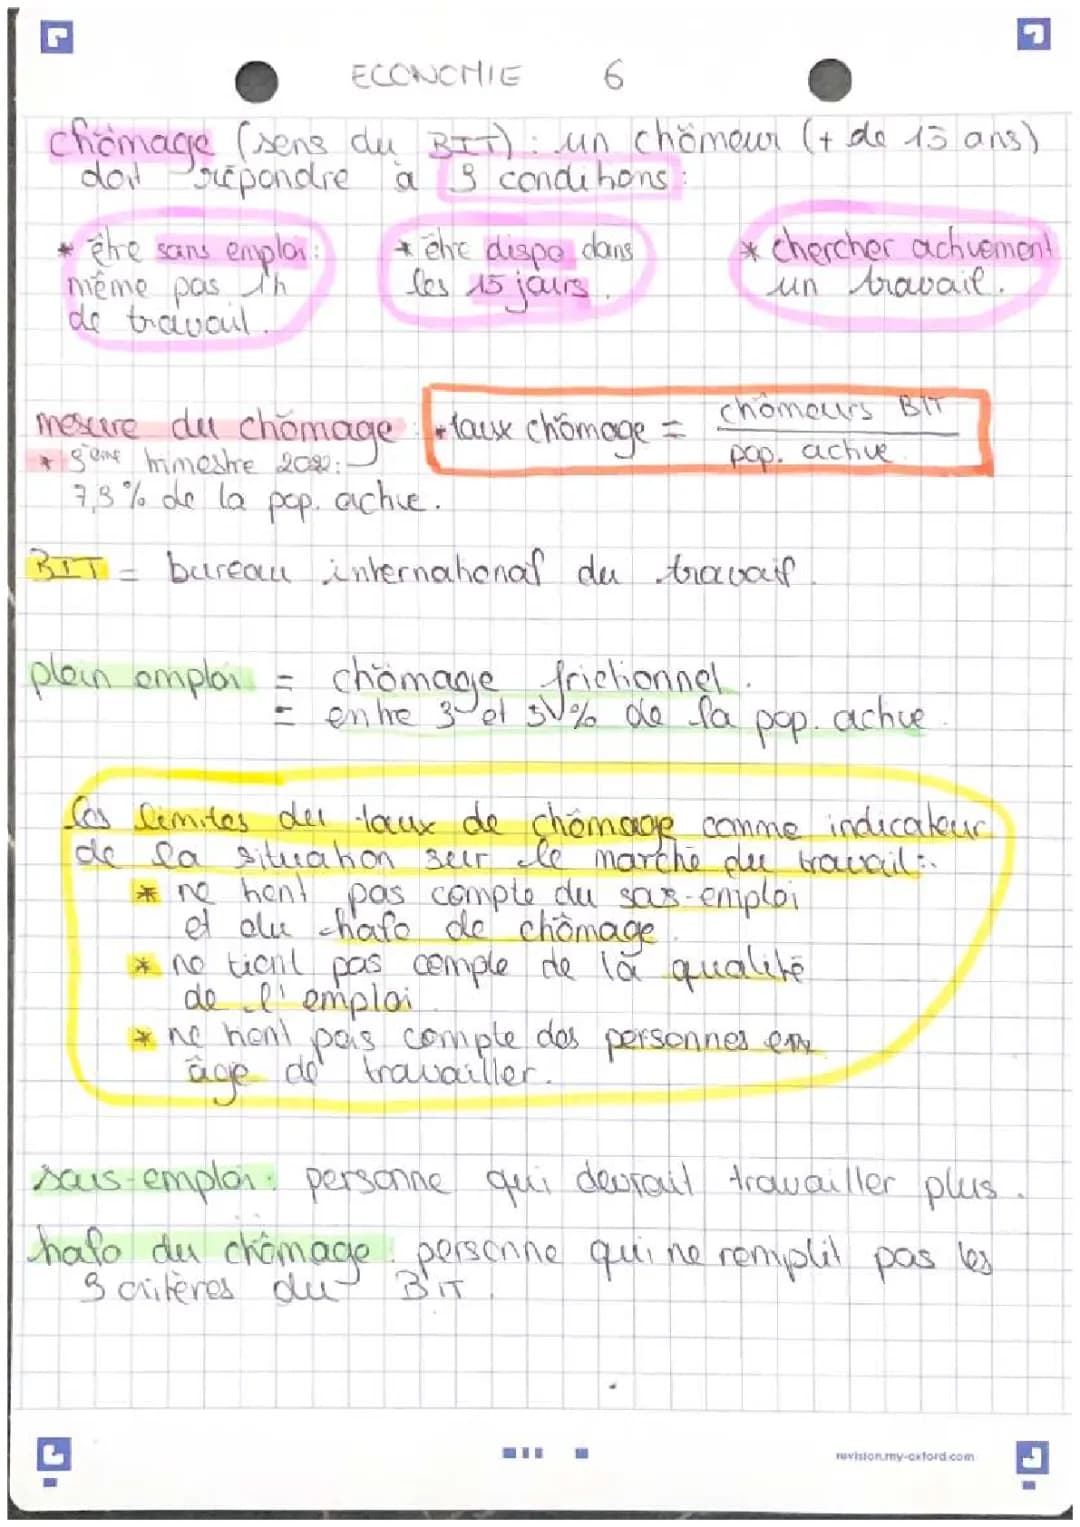 ECONOMIE 6
chômage (sens du BIT) : un chômeur (+ de 15 ans)
doit répondre à 3 conditions :
* être sans emploi :
même pas 1h
de travail.
* être dispo dans
les 15 jours.
* chercher activement
un travail.
mesure du chômage : * taux chômage = chômeurs BIT
pop. active
* 3ème trimestre 2022 :
7,3% de la pop. active.
BIT = bureau international du travail.
plein emploi = chômage frictionnel.
= entre 3 et 5% de la pop. active.
Les limites du taux de chômage comme indicateur
de la situation sur le marché du travail :
* ne tient pas compte du sous-emploi
et du halo de chômage.
* ne tient pas compte de la qualité
de l'emploi
* ne tient pas compte des personnes en
âge de travailler.
sous-emploi : personne qui devrait travailler plus.
halo du chômage : personne qui ne remplit pas les
3 critères du BIT.
revision.my-oxford.com